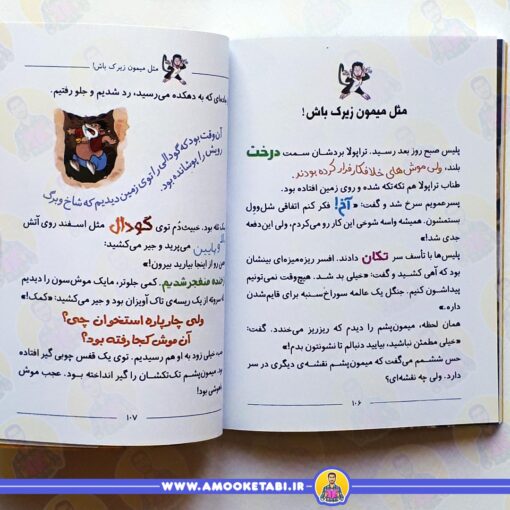 مثل میمون زیرک باش!
پلیس صبح روز بعد رسید. تراپولا بردشان سمت درخت
بلند، ولی موش‌های خلافکار فرار کرده بودند.
طناب تراپولا هم تکه‌تکه شده و روی زمین افتاده بود.
پسرعمویم سرخ شد و گفت: «آخ! فکر کنم اتفاقی شل‌وول
بستمشون. همیشه واسه شوخی این کار رو می‌کردم، ولی این‌دفعه
جدی شد!»
پلیس‌ها با تأسف سر تکان دادند. افسر ریزه‌میزه‌ای بینشان
بود که آهی کشید و گفت: «خیلی بد شد. هیچ‌وقت نمی‌تونیم
پیداشون کنیم. جنگل یک عالمه سوراخ‌سنبه برای قایم‌شدن
داره.»
همان لحظه، میمون‌پشم را دیدم که ریزریز می‌خندد. گفت:
«خیلی مطمئن نباشید، بیایید دنبالم تا نشونتون بدم!»
حس ششمم می‌گفت که میمون‌پشم نقشه‌ی دیگری در سر
دارد. ولی چه نقشه‌ای؟
۱۰۶
مثل میمون زیرک باش!
که به دهکده می‌رسید، رد شدیم و جلو رفتیم.
آن وقت بود که گودالی را توی زمین دیدیم که شاخ و برگ
رویش را پوشانده بود.
بود. خبیث‌دُم توی گودال مثل اسفند روی آتش
پایین می‌پرید و جیر می‌کشید:
رو از اینجا بیارید بیرون!»
خنده منفجر شدیم. کمی جلوتر، مایک موش‌سون را دیدیم
از یک ریسه‌ی تاک آویزان بود و جیر می‌کشید: «کمک!»
ولی چارپاره استخوان چی؟
آن موش کجا رفته بود؟
خیلی زود به او هم رسیدیم. توی یک قفس چوبی گیر افتاده
میمون‌پشم تک‌تکشان را گیر انداخته بود. عجب موش
بود!
۱۰۷
WWW.AMOOKETABI.IR